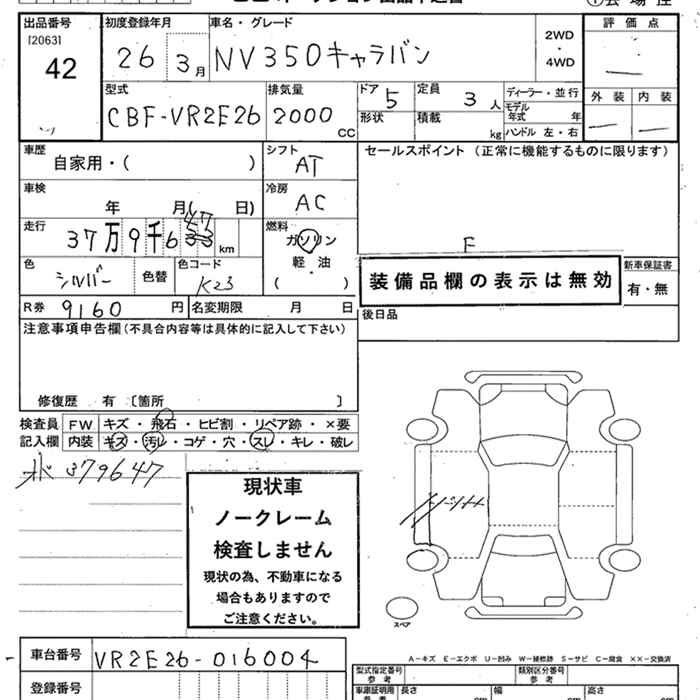 出品番号 初度登録年月 車名・グレード 評価点
[2063] 42 26 3月 NV350キャラバン 2WD・4WD
外装 内装
型式 排気量 ドア 5 定員 3人 ディーラー・並行
CBF-VR2E26 2000 CC 形状 積載 kg モデル年式 年
ハンドル 左・右
車歴 シフト セールスポイント（正常に機能するものに限ります）
自家用・（ ） AT
車検 冷房
年 月（ 日） AC
走行 47 燃料
37万9千6 33 km ガソリン F
軽・油
（ ）
色 シルバー 色替 色コード K23
装備品欄の表示は無効 新車保証書
有・無
R券 9160 円 名変期限 月 日 後日品
注意事項申告欄（不具合内容等は具体的に記入して下さい）
修復歴 有〔箇所 〕
検査員 FW キズ・飛石・ヒビ割・リペア跡・×要
記入欄 内装 キズ・汚レ・コゲ・穴・スレ・キレ・破レ
379647
現状車
ノークレーム
検査しません
現状の為、不動車になる
場合もありますので
ご注意ください。
スペア
A－キズ E－エクボ U－凹み W－補修跡 S－サビ C－腐食 ××－交換済
車台番号 VR2E26-016004
型式指定番号 参考 類別区分番号 参考
登録番号 車庫証明用 参考 長さ 幅 高さ